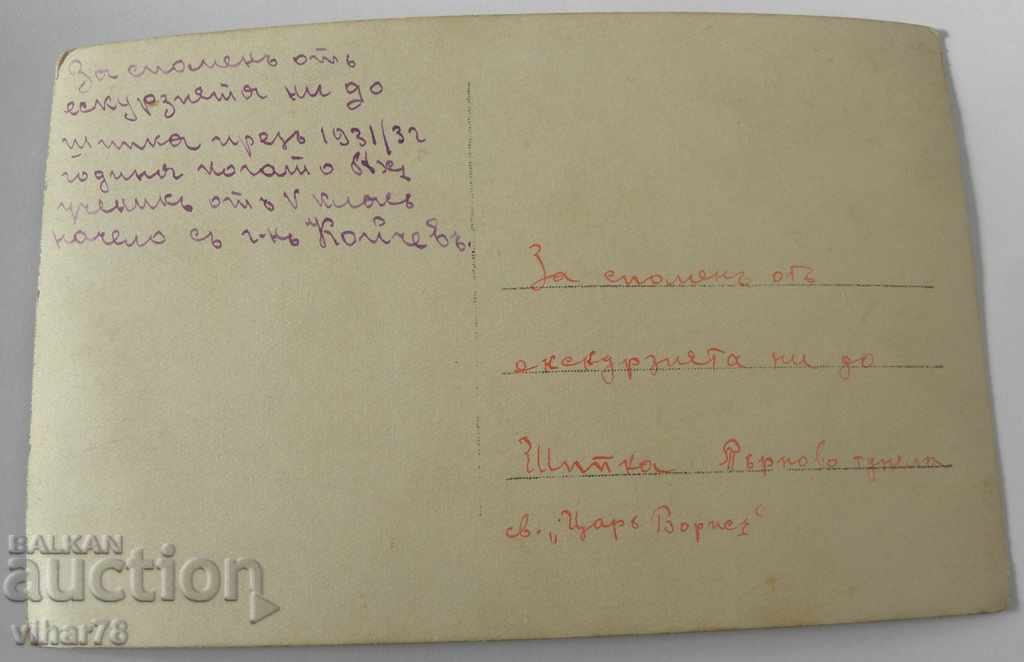 За споменъ отъ
ескурзията ни до
шипка презъ 1931/32
година когато бяхъ
ученикъ отъ V класъ
начело съ г-нъ Койчевъ.
За споменъ отъ
екскурзията ни до
Шипка Търново тунела
св. „Царь Борисъ“
BALKAN
auction
vihar78